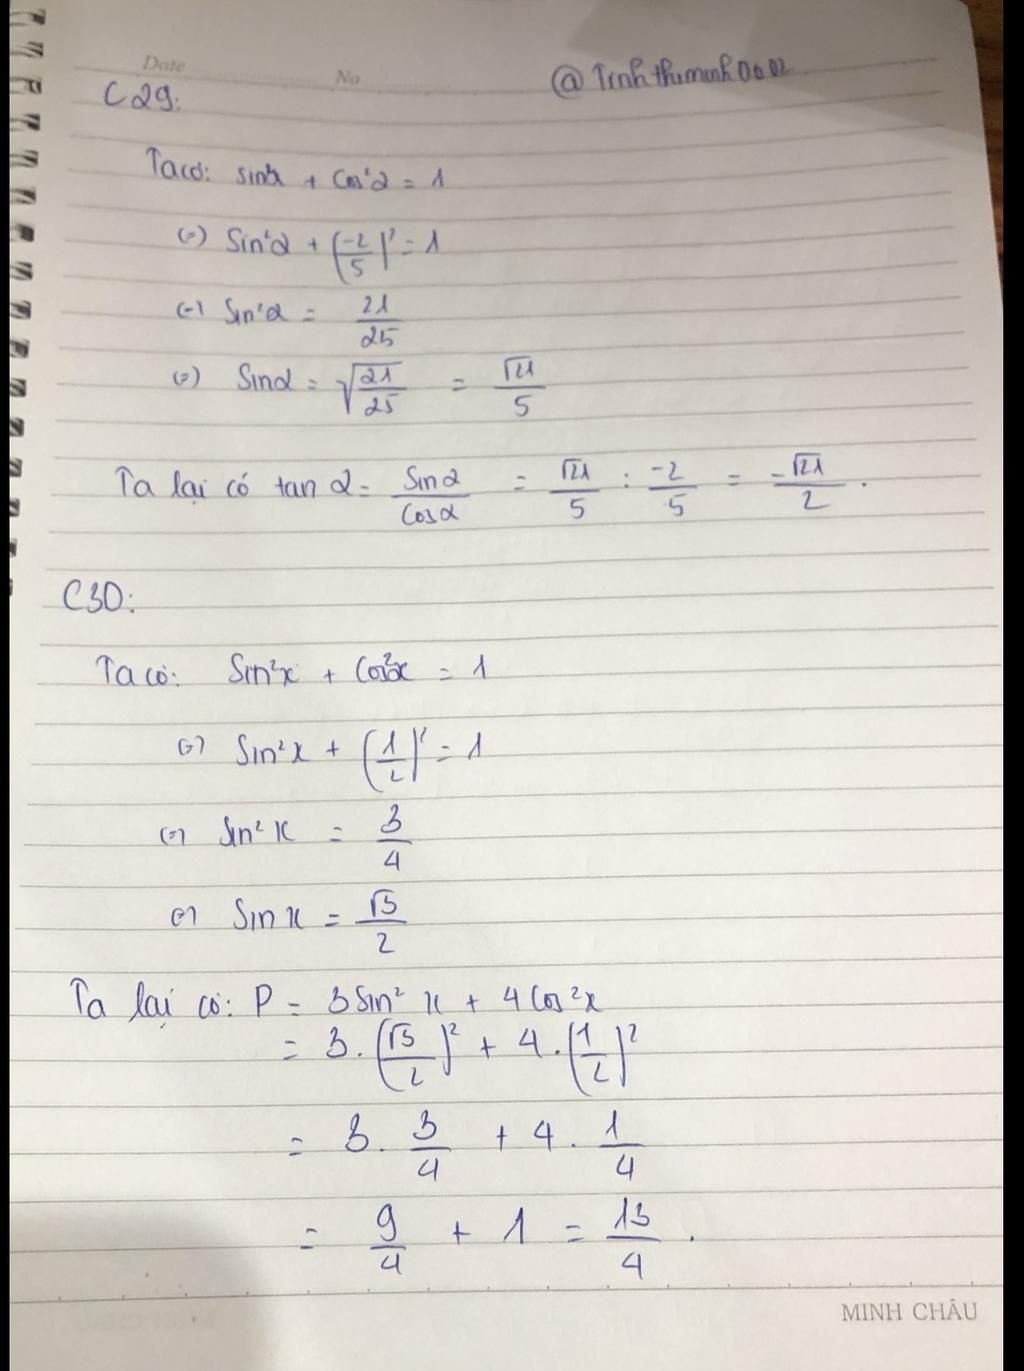 Date No @Tinhthuminh0602
C29:
Ta có: sin²α + cos²α = 1
(=) Sin²α + (-2/5)² = 1
(=) Sin²α = 21/25
(=) Sinα = √(21/25) = √21/5
Ta lại có tan α = Sinα/Cosα = √21/5 : -2/5 = -√21/2.
C30:
Ta có: Sin²x + Cos²x = 1
(=) Sin²x + (1/2)² = 1
(=) Sin²x = 3/4
(=) Sin x = √3/2
Ta lại có: P = 3Sin² x + 4Cos²x
= 3.(√3/2)² + 4.(1/2)²
= 3. 3/4 + 4. 1/4
= 9/4 + 1 = 13/4.
MINH CHÂU